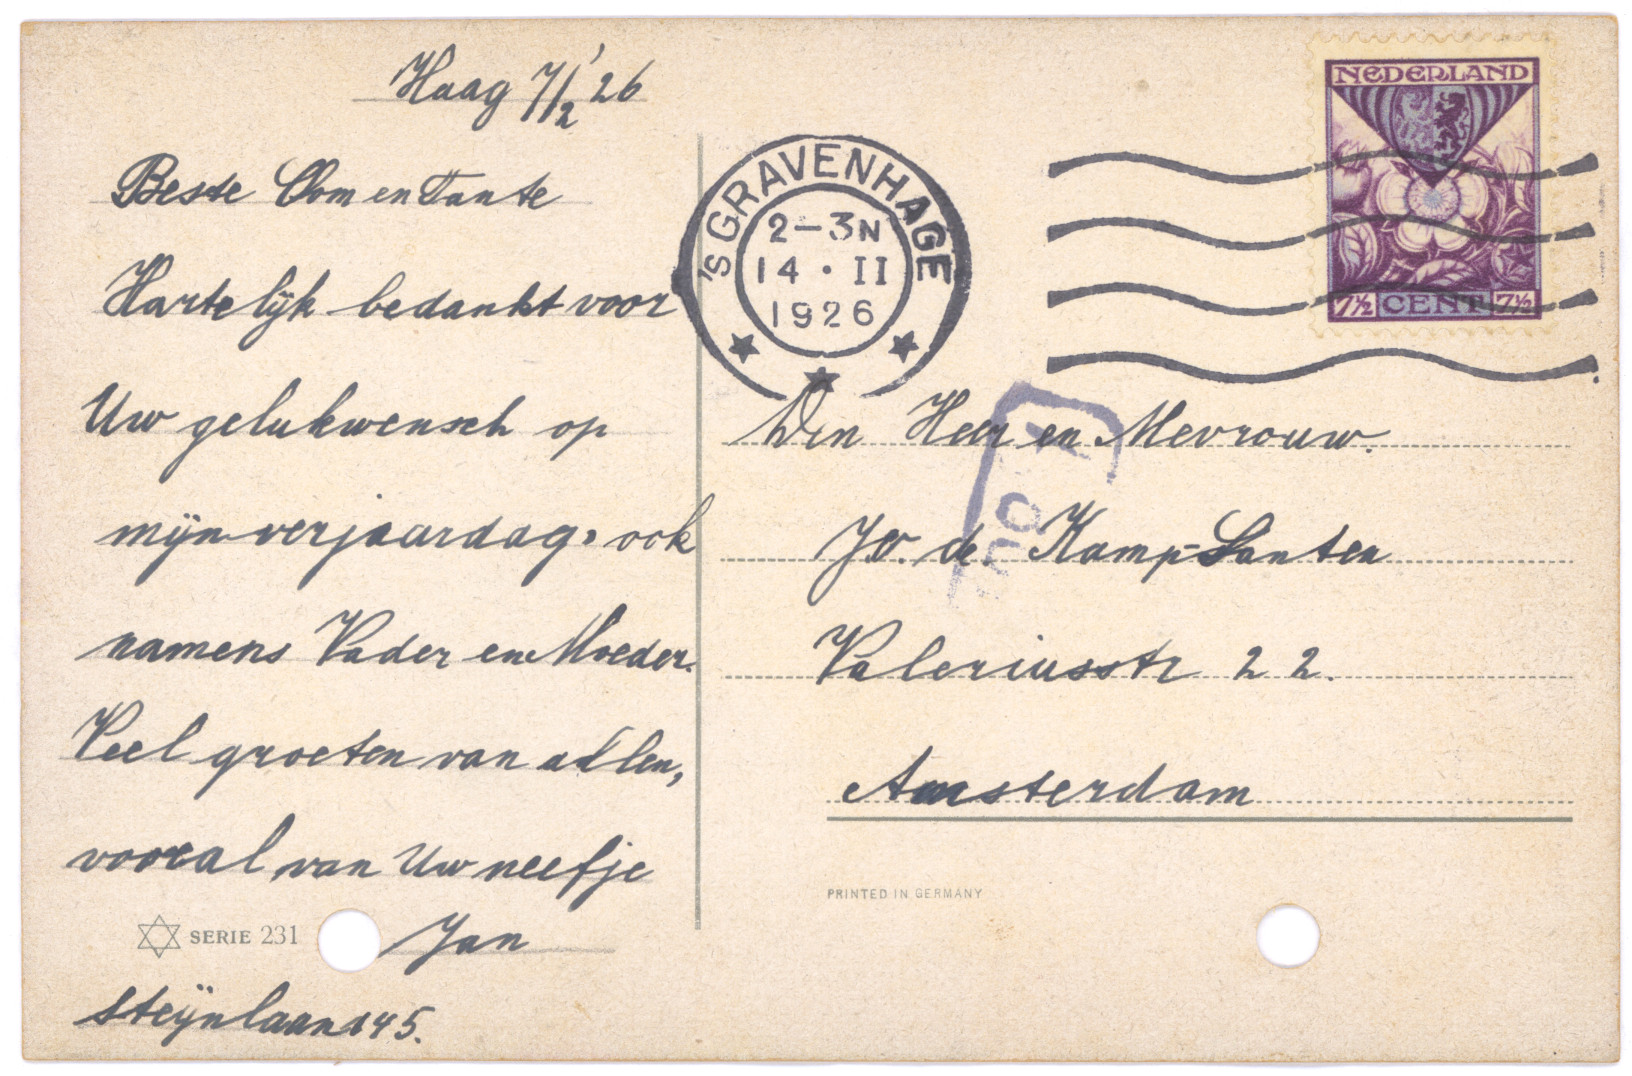 Haag 7/2 '26
Beste Oom en Tante
Hartelijk bedankt voor
Uw gelukwensch op
mijn verjaardag, ook
namens Vader en Moeder.
Veel groeten van allen,
vooral van Uw neefje
Jan
Steijnlaan 145.
SERIE 231
'S GRAVENHAGE
2-3N
14 · II
1926
NEDERLAND
7½ CENT 7½
Den Heer en Mevrouw.
de Kamp-Santen
Valeriusstr 22.
Amsterdam
PRINTED IN GERMANY